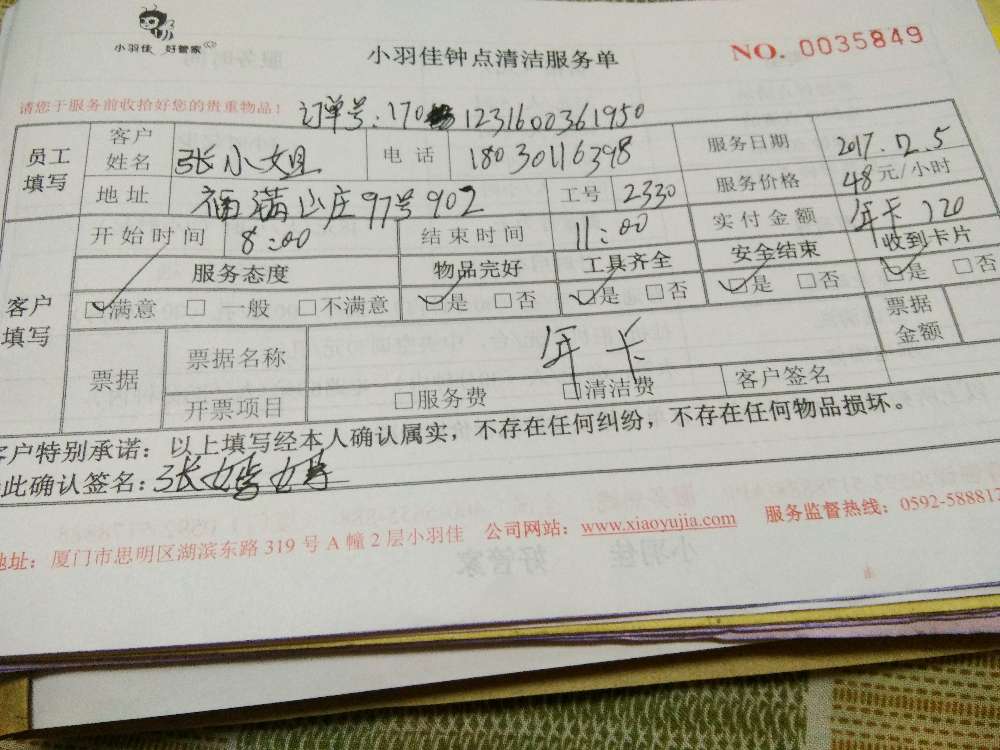 小羽佳 好管家
小羽佳钟点清洁服务单
NO. 0035849
请您于服务前收拾好您的贵重物品！
订单号：170 1231600361950
员工填写 客户姓名 张小姐 电话 18030116398 服务日期 2017.12.5
地址 福满山庄97号902 工号 2330 服务价格 48元/小时
客户填写 开始时间 8:00 结束时间 11:00 实付金额 年卡 120
服务态度 物品完好 工具齐全 安全结束 收到卡片
☑满意 □一般 □不满意 ☑是 □否 ☑是 □否 ☑是 □否 ☑是 □否
票据 票据名称 年卡 票据金额
开票项目 □服务费 □清洁费 客户签名
客户特别承诺：以上填写经本人确认属实，不存在任何纠纷，不存在任何物品损坏。
此确认签名：张
地址：厦门市思明区湖滨东路 319 号 A 幢 2 层小羽佳 公司网站：www.xiaoyujia.com 服务监督热线：0592-588817